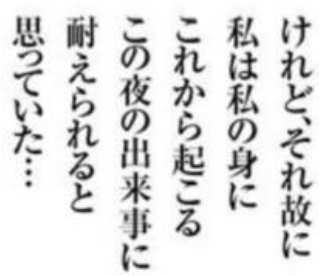 けれど、それ故に
私は私の身に
これから起こる
この夜の出来事に
耐えられると
思っていた…